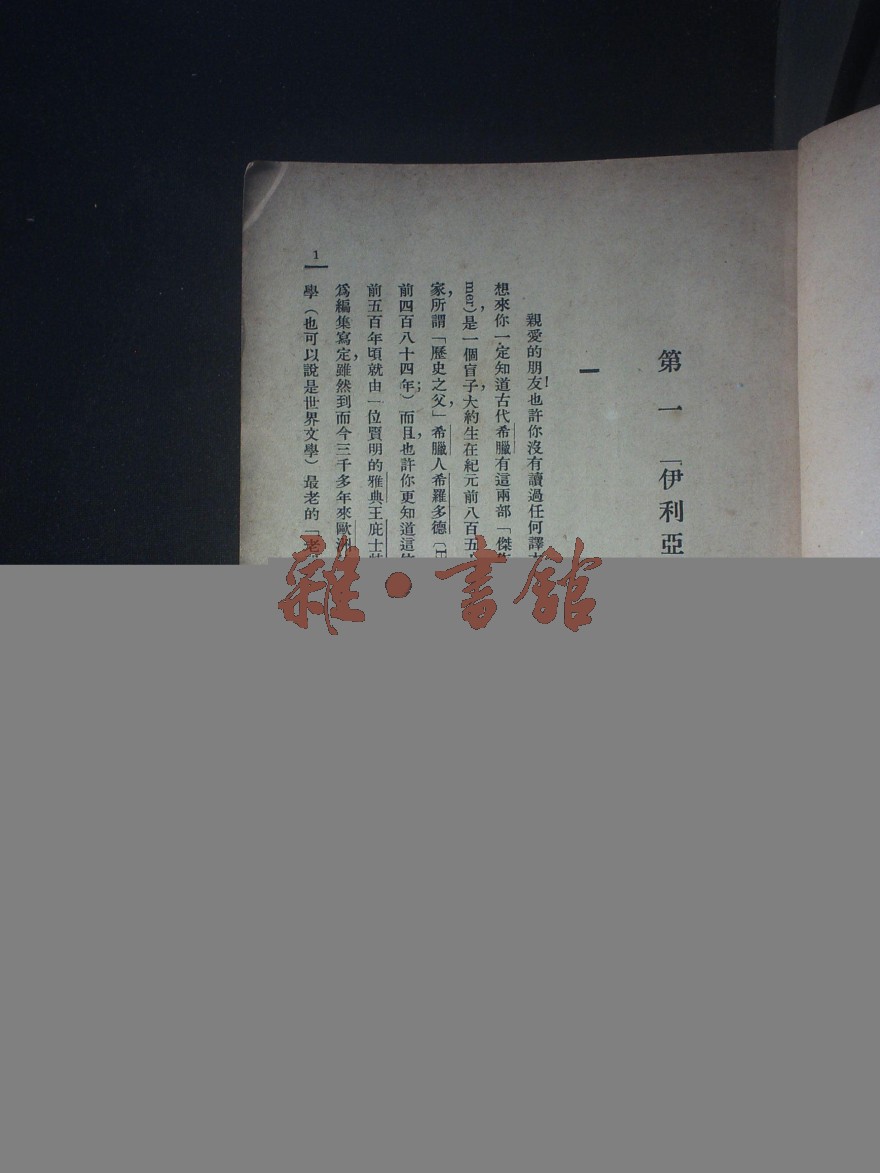 第一 「伊利亞
一
親愛的朋友！也許你沒有讀過任何譯
想來你一定知道古代希臘有這兩部「傑
mer)，是一個盲子，大約生在紀元前八百五
家，所謂「歷史之父」，希臘人希羅多德
前四百八十四年）；而且，也許你更知道這
前五百年頃就由一位賢明的雅典王庇士
爲編集寫定，雖然到而今三千多年來歐洲
學（也可以說是世界文學）最老的「老
1
雜·書館